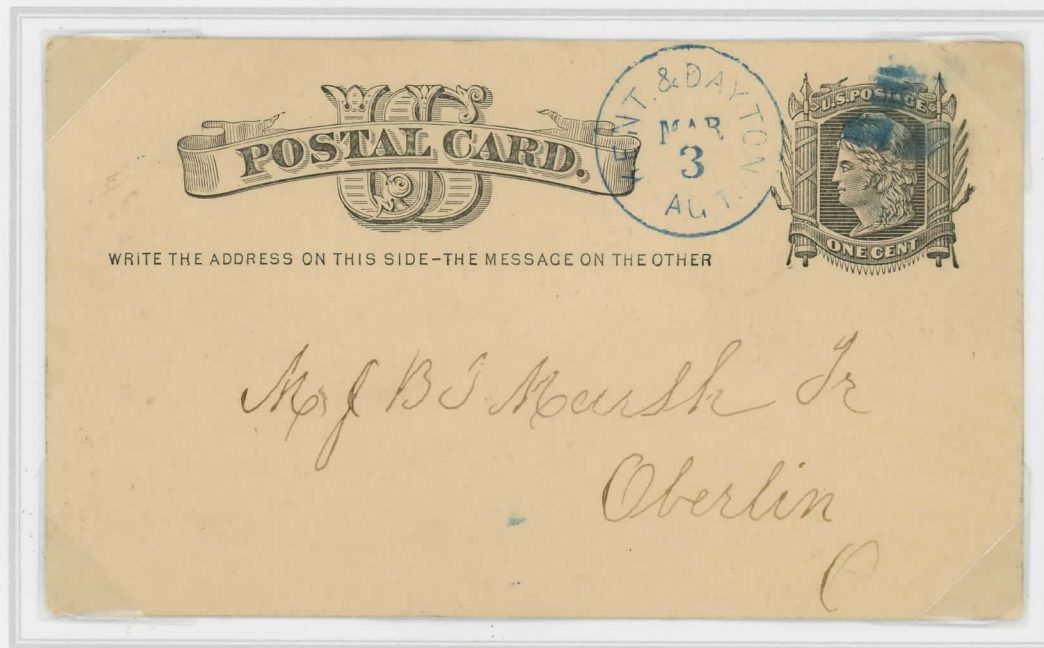 US
POSTAL CARD.
KENT. & DAYTON
MAR
3
AGT.
U.S. POSTAGE
ONE CENT
WRITE THE ADDRESS ON THIS SIDE-THE MESSAGE ON THE OTHER
Mr J B T Marsh Jr
Oberlin
O